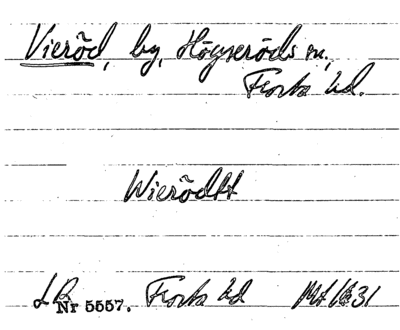 Vieröd, by, Högseröds sn,
Frosta hd.
Wierödtt
LB Nr 5557. Frosta hd Mt 1631